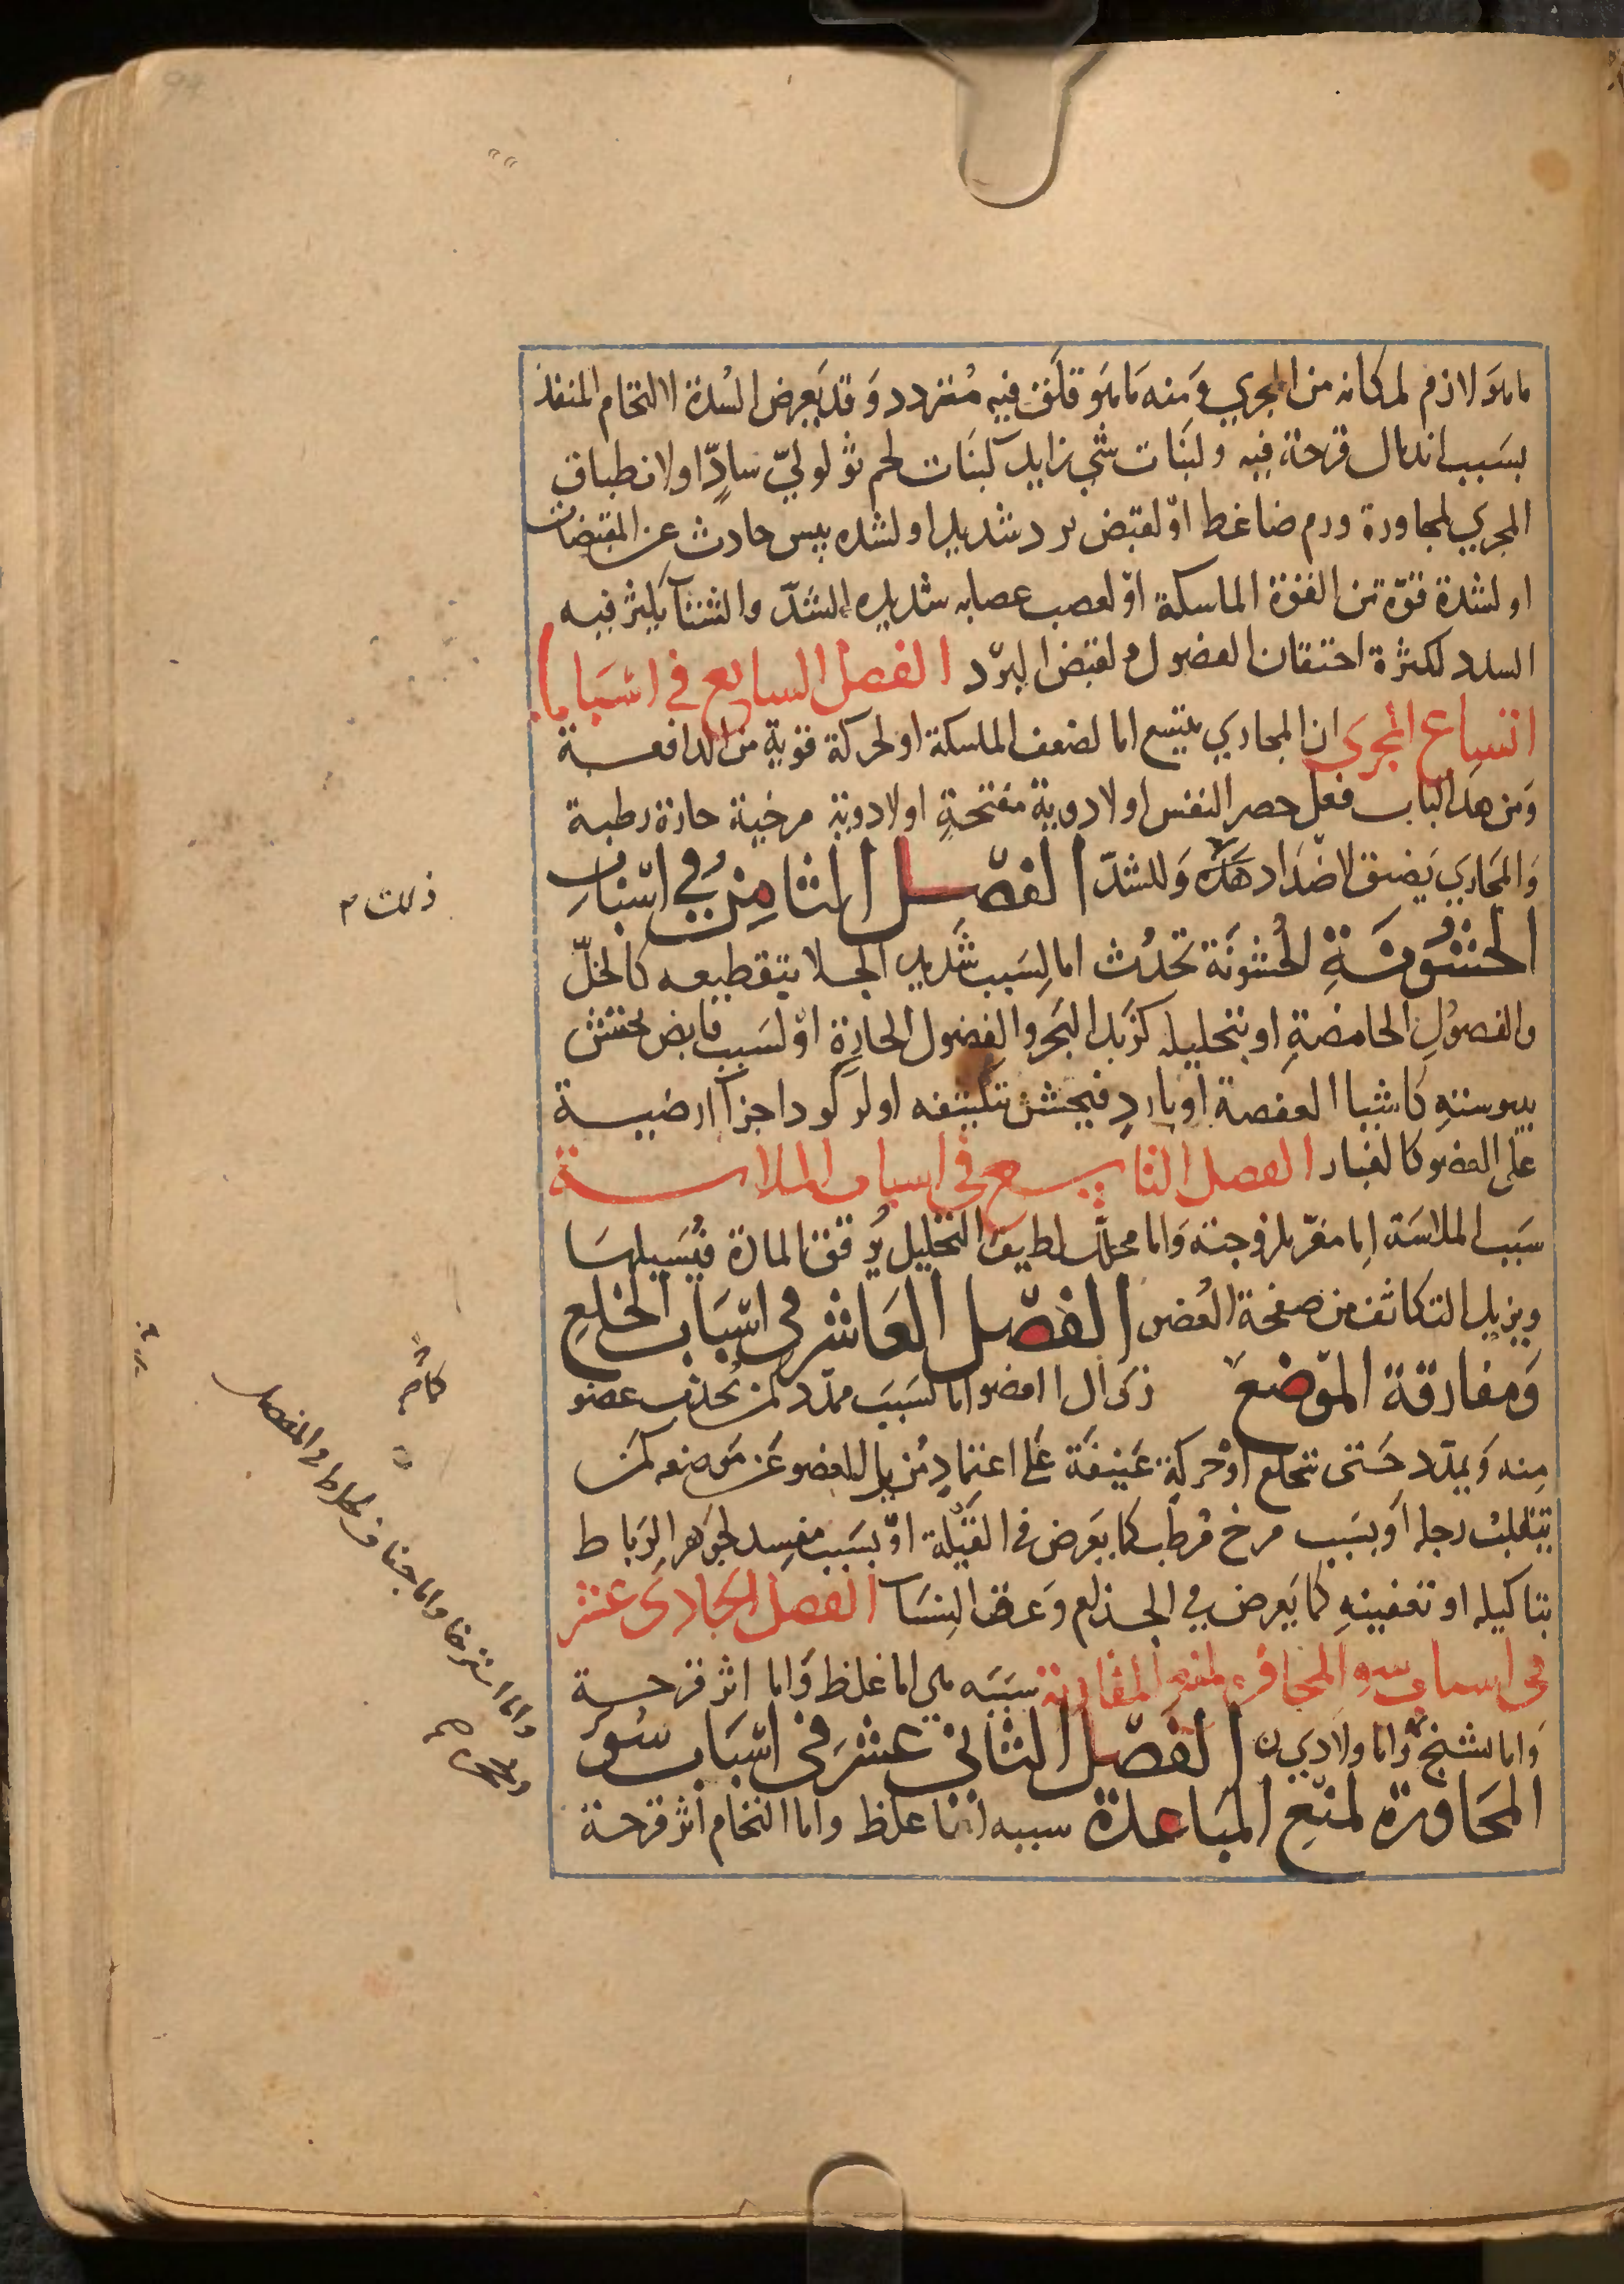 ما هو لازم لمكانه من المجري ومنه ما هو قلق فيه متردد وقد يعرض السدة لالتحام المنفذ
بسبب اندمال قرحة فيه ولنبات شي زايد كنبات لحم ثولولي سادّ او لانطباق
المجري لمجاورة ورم ضاغط او لقبض برد شديد او لشده يبس حادث عن المقبضات
او لشدة قوّة من القوة الماسكة او لعصب عصابه شديده الشدّ والشتا يكثر فيه
السدد لكثرة احتقان الفضول ولقبض البرد الفصل السابع في اسباب
اتساع المجرى ان المجاري يتسع اما لضعف الماسكة او لحركة قوية من الدافعة
ومن هذا الباب فعل حصر النفس او لادوية مفتحة او لادوية مرخية حارة رطبة
والمجاري يضيق لاضداد هذه وللسدّ الفصل الثامن في اسباب
الخشونة الخشونة تحدث اما لسبب شديد الجلا بتقطيعه كالخلّ
والفضول الحامضة او بتحليله كزبد البحر والفضول الحارة او لسبب قابض يخشن
بيبوسته كالاشيا العفصة او بارد فيخشن بتكثيفه او لركود اجزآ ارضية
على العضو كالغبار الفصل التاسع في اسباب الملاسة
سبب الملاسة اما مغرّ بلزوجته واما محلل لطيف التحليل يرقق المادة فيسيلها
ويزيل التكاثف من صفحة العضو الفصل العاشر في اسباب الخلع
ومفارقة الموضع زوال العضو اما لسبب ممدد كمن يجذب عضو
منه ويمدّد حتى ينخلع او حركة عنيفة على اعتماد مزيل للعضو عن موضعه كمن
تنقلب رجله او بسبب مرخ مرطب كما يعرض في القيلة او بسبب مفسد لجوهر الرباط
بتاكيله او تعفينه كما يعرض في الجذام وعرق النسا الفصل الحادى عشر
في اسباب سو المجاورة لمنع المقاربة سببه اما غلظ واما اثر قرحة
واما تشنج واما ولادي الفصل الثاني عشر في اسباب سو
المجاورة لمنع المباعدة سببه اما غلظ واما التحام اثر قرحة
ذلك
كان
واما استرخا واما جفاف خلط في المفصل